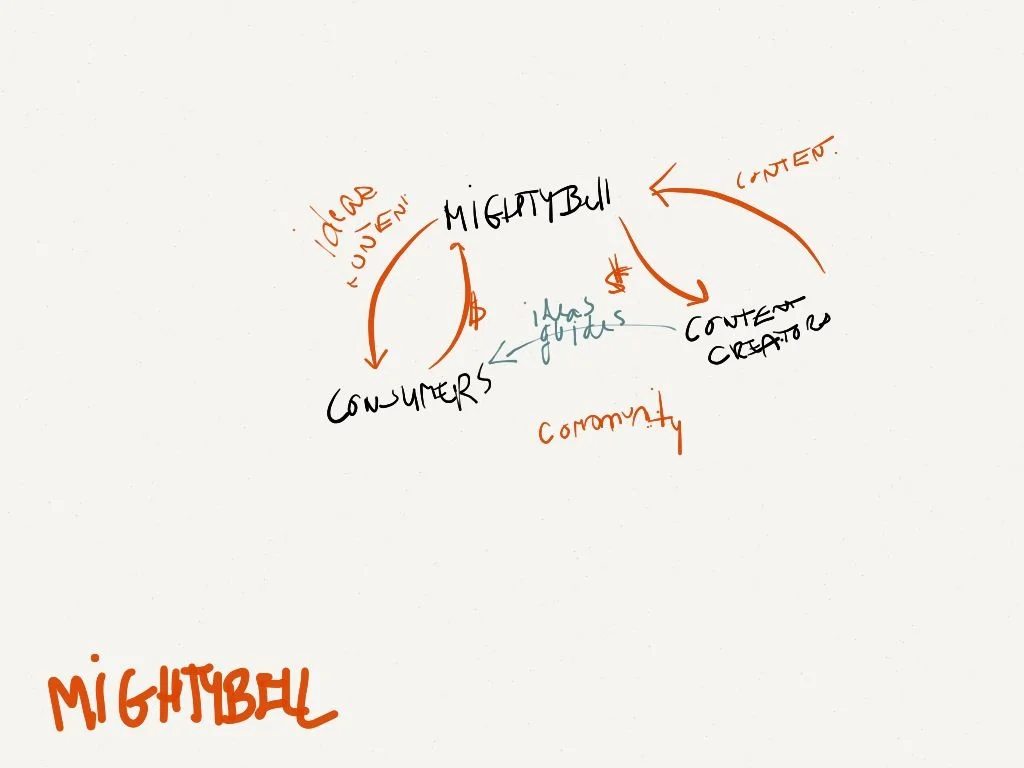 CONTEN.
ideas
CONTENT
MIGHTYBell
$
$
ideas
guides
CONTENT
CREATORS
CONSUMERS
community
MIGHTYBELL